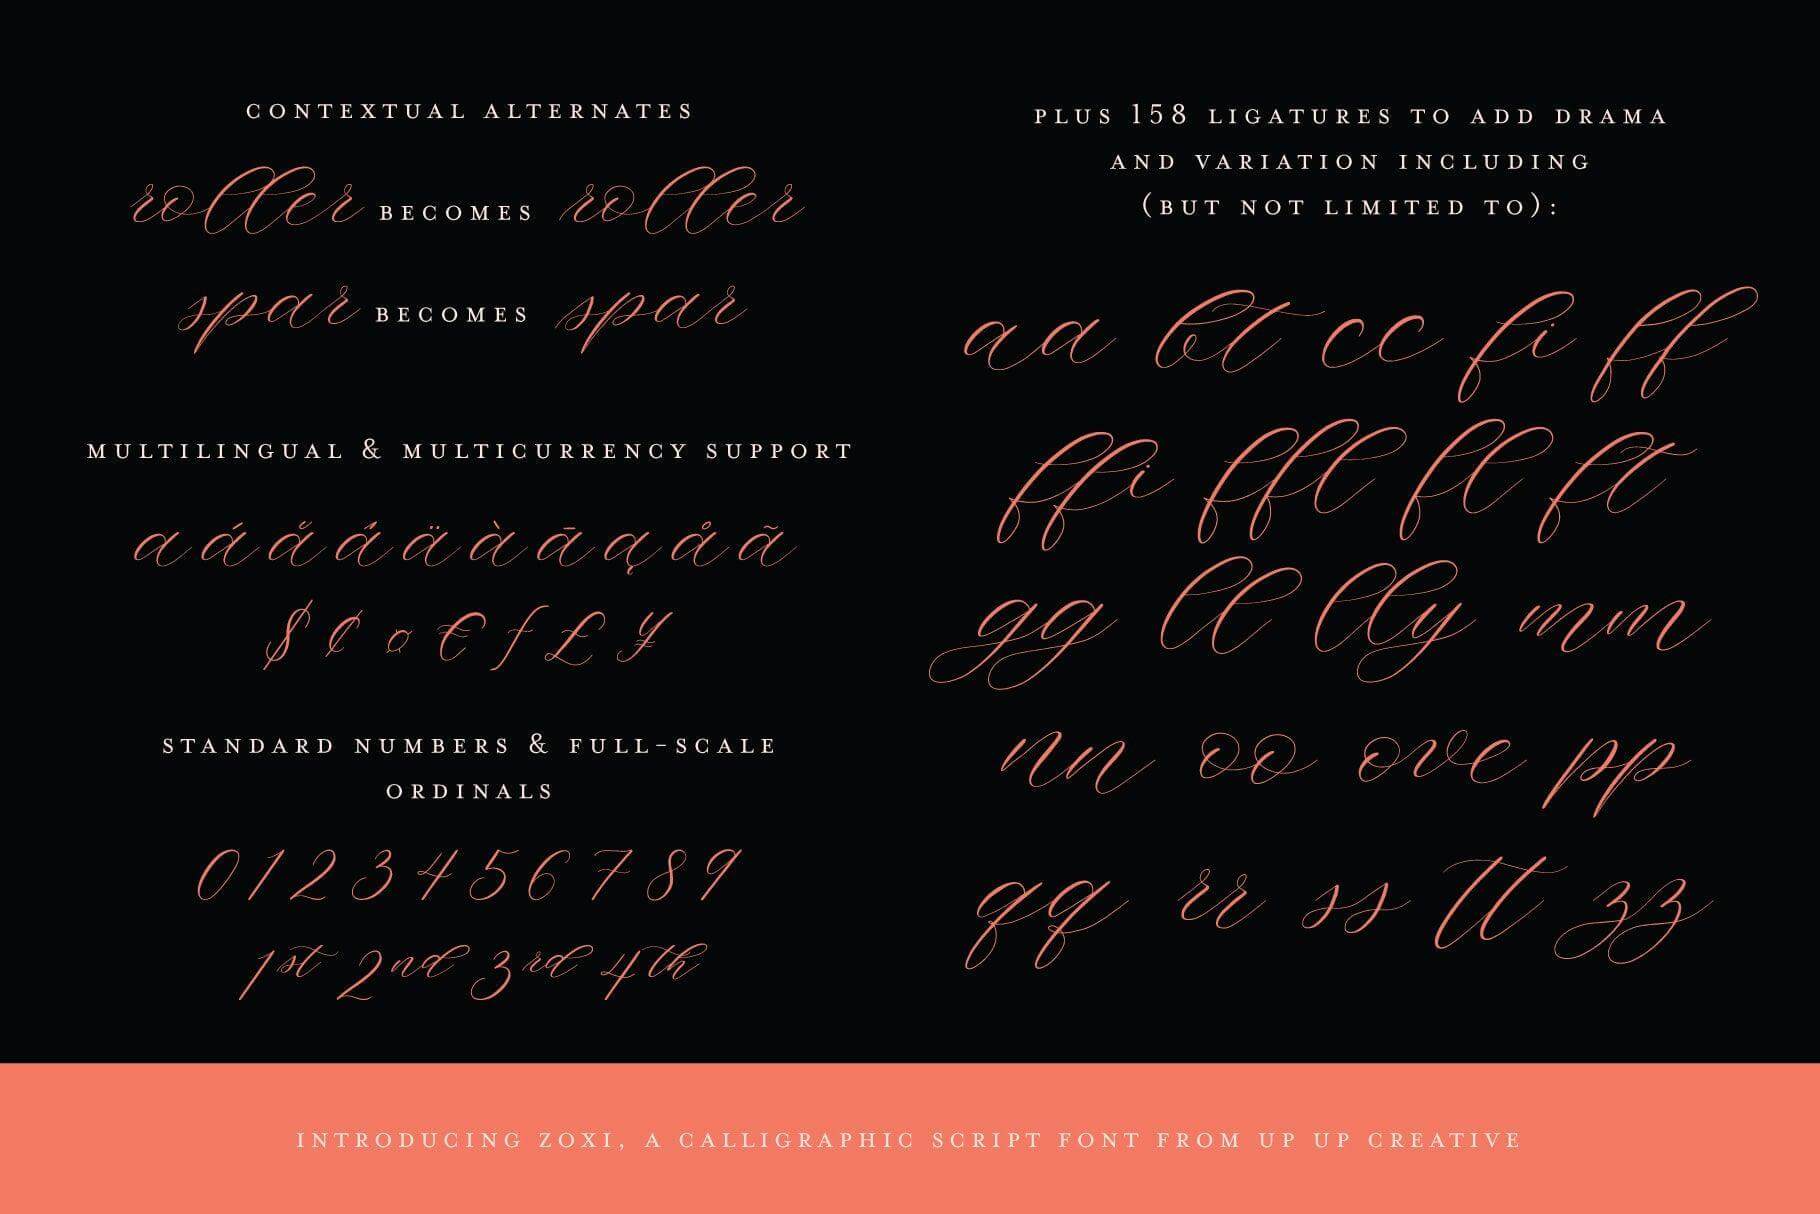 CONTEXTUAL ALTERNATES
roller BECOMES roller
spar BECOMES spar
MULTILINGUAL & MULTICURRENCY SUPPORT
a á ǎ ấ ä à ā ą å ã
$ ¢ ¤ € ƒ £ ¥
STANDARD NUMBERS & FULL-SCALE
ORDINALS
0 1 2 3 4 5 6 7 8 9
1st 2nd 3rd 4th
PLUS 158 LIGATURES TO ADD DRAMA
AND VARIATION INCLUDING
(BUT NOT LIMITED TO):
aa bt cc fi ff
ffi ffl fl ft
gg ll lly mm
nn oo ove pp
qq rr ss tt zz
INTRODUCING ZOXI, A CALLIGRAPHIC SCRIPT FONT FROM UP UP CREATIVE